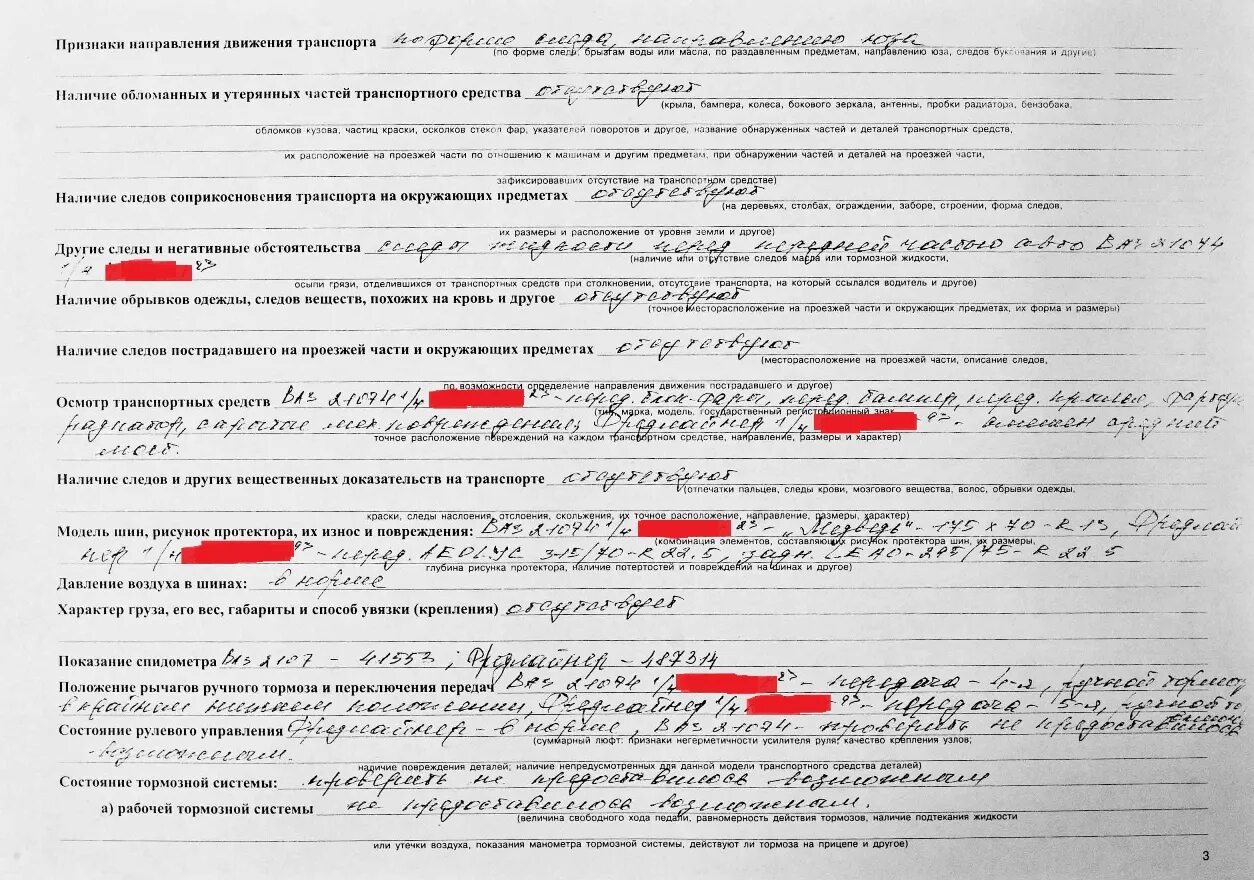 Признаки направления движения транспорта по форме следа, направлению юза
(по форме следа, брызгам воды или масла, по раздавленным предметам, направлению юза, следов буксования и другие)
Наличие обломанных и утерянных частей транспортного средства отсутствуют
(крыла, бампера, колеса, бокового зеркала, антенны, пробки радиатора, бензобака,
обломков кузова, частиц краски, осколков стекол фар, указателей поворотов и другое, название обнаруженных частей и деталей транспортных средств,
их расположение на проезжей части по отношению к машинам и другим предметам, при обнаружении частей и деталей на проезжей части,
зафиксировавших отсутствие на транспортном средстве)
Наличие следов соприкосновения транспорта на окружающих предметах отсутствуют
(на деревьях, столбах, ограждении, заборе, строении, форма следов,
их размеры и расположение от уровня земли и другое)
Другие следы и негативные обстоятельства следы жидкости перед передней частью авто ВАЗ 21074
(наличие или отсутствие следов масла или тормозной жидкости,
г/н 23
осыпи грязи, отделившихся от транспортных средств при столкновении, отсутствие транспорта, на который ссылался водитель и другое)
Наличие обрывков одежды, следов веществ, похожих на кровь и другое отсутствуют
(точное месторасположение на проезжей части и окружающих предметах, их форма и размеры)
Наличие следов пострадавшего на проезжей части и окружающих предметах отсутствуют
(месторасположение на проезжей части, описание следов,
по возможности определение направления движения пострадавшего и другое)
Осмотр транспортных средств ВАЗ 21074 г/н 23 - перед. блок-фары, перед. бампер, перед. крылья,
(тип, марка, модель, государственный регистрационный знак,
радиатор, скрытые мех. повреждения; Фредлайнер г/н 93 - средний
точное расположение повреждений на каждом транспортном средстве, направление, размеры и характер)
мост.
Наличие следов и других вещественных доказательств на транспорте отсутствуют
(отпечатки пальцев, следы крови, мозгового вещества, волос, обрывки одежды,
краски, следы наслоения, отслоения, скольжения, их точное расположение, направление, размеры, характер)
Модель шин, рисунок протектора, их износ и повреждения: ВАЗ 21074 г/н 23 - "Медведь" - 175 х 70 - R 13, Фредлай
(комбинация элементов, составляющих рисунок протектора шин, их размеры,
нер г/н 93 - перед. AEOLUS 315/70 - R 22.5, задн. LEAO - 295/75 - R 22 5
глубина рисунка протектора, наличие потертостей и повреждений на шинах и другое)
Давление воздуха в шинах: в норме
Характер груза, его вес, габариты и способ увязки (крепления) отсутствует
Показание спидометра ВАЗ 2107 - 41553; Фредлайнер - 487314
Положение рычагов ручного тормоза и переключения передач ВАЗ 21074 г/н 23 - передача - 4-я, ручной тормоз
в крайнем нижнем положении, Фредлайнер г/н 93 - передача - 5-я, ручной то
Состояние рулевого управления Фредлайнер - в норме, ВАЗ 21074 - проверить не предоставилось
(суммарный люфт: признаки негерметичности усилителя руля; качество крепления узлов;
возможным.
наличие повреждения деталей; наличие непредусмотренных для данной модели транспортного средства деталей)
Состояние тормозной системы: проверить не предоставилось возможным
а) рабочей тормозной системы не предоставилось возможным.
(величина свободного хода педали, равномерность действия тормозов, наличие подтекания жидкости
или утечки воздуха, показания манометра тормозной системы, действуют ли тормоза на прицепе и другое)
3